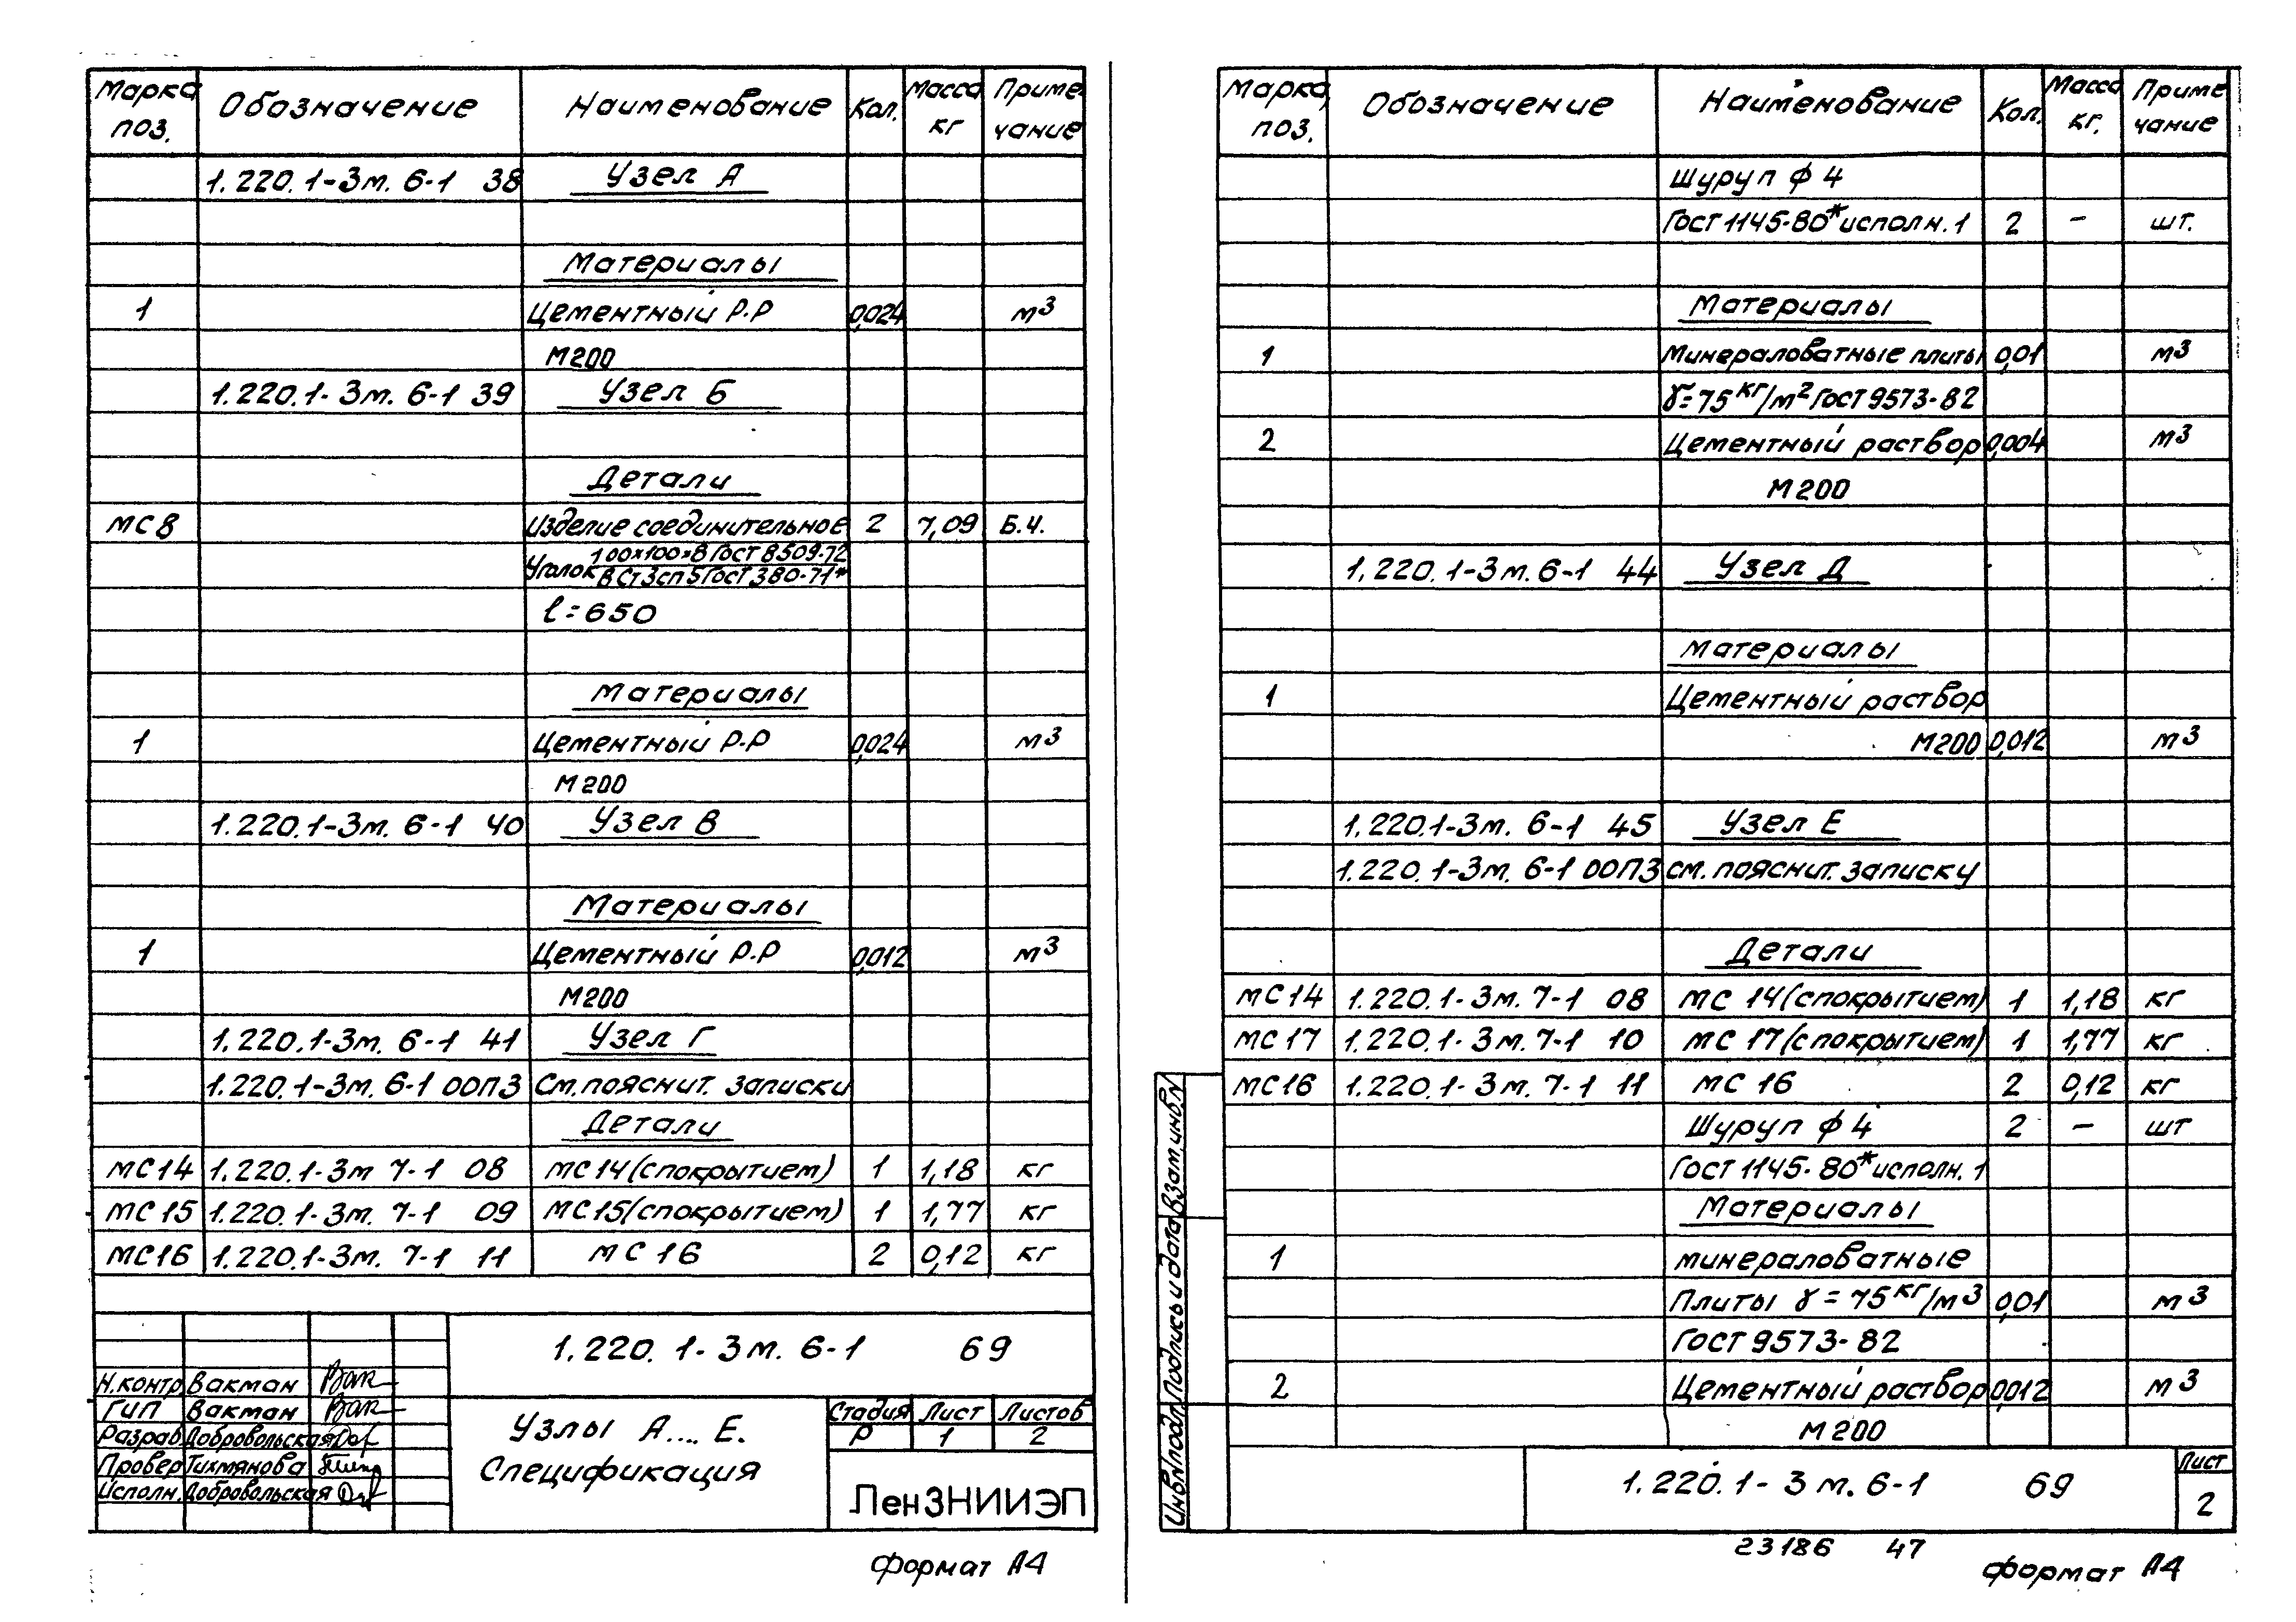 Марка поз. Обозначение Наименование Кол. Масса кг Примечание
1.220.1-3м. 6-1 38 Узел А
Материалы
1 Цементный р-р 0,024 м3
М200
1.220.1-3м. 6-1 39 Узел Б
Детали
МС8 Изделие соединительное 2 7,09 Б.ч.
Уголок 100×100×8 Гост 8509-72
ВСт3сп5 Гост 380-71*
l=650
Материалы
1 Цементный р-р 0,024 м3
М200
1.220.1-3м. 6-1 40 Узел В
Материалы
1 Цементный р-р 0,012 м3
М200
1.220.1-3м. 6-1 41 Узел Г
1.220.1-3м. 6-1 00ПЗ См. пояснит. записки
Детали
МС14 1.220.1-3м 7-1 08 МС14(спокрытием) 1 1,18 кг
МС15 1.220.1-3м. 7-1 09 МС15(спокрытием) 1 1,77 кг
МС16 1.220.1-3м. 7-1 11 МС 16 2 0,12 кг
1.220.1-3м. 6-1 69
Н.контр Вакман
ГИП Вакман
Разраб. Добровольская
Провер Тихмянова
Исполн. Добровольская
Узлы А.... Е.
Спецификация
Стадия Лист Листов
Р 1 2
ЛенЗНИИЭП
формат А4
Марка, поз. Обозначение Наименование Кол. Масса кг. Примечание
Шуруп ф 4
Гост 1145-80* исполн. 1 2 – шт.
Материалы
1 Минераловатные плиты 0,01 м3
γ=75 кг/м2 Гост 9573-82
2 Цементный раствор 0,004 м3
М200
1.220.1-3м. 6-1 44 Узел Д
Материалы
1 Цементный раствор
М200 0,012 м3
1.220.1-3м. 6-1 45 Узел Е
1.220.1-3м. 6-1 00ПЗ см. пояснит. записку
Детали
МС14 1.220.1-3м. 7-1 08 МС 14(спокрытием) 1 1,18 кг
МС17 1.220.1-3м. 7-1 10 МС 17(спокрытием) 1 1,77 кг
МС16 1.220.1-3м. 7-1 11 МС 16 2 0,12 кг
Шуруп ф 4 2 – шт
Гост 1145-80* исполн. 1
Материалы
1 минераловатные
Плиты γ = 75 кг/м3 0,01 м3
Гост 9573-82
2 Цементный раствор 0,012 м3
М200
Инв№подл. Подпись и дата Взам.инв№
1.220.1-3м. 6-1 69
Лист
2
23186 47
формат А4